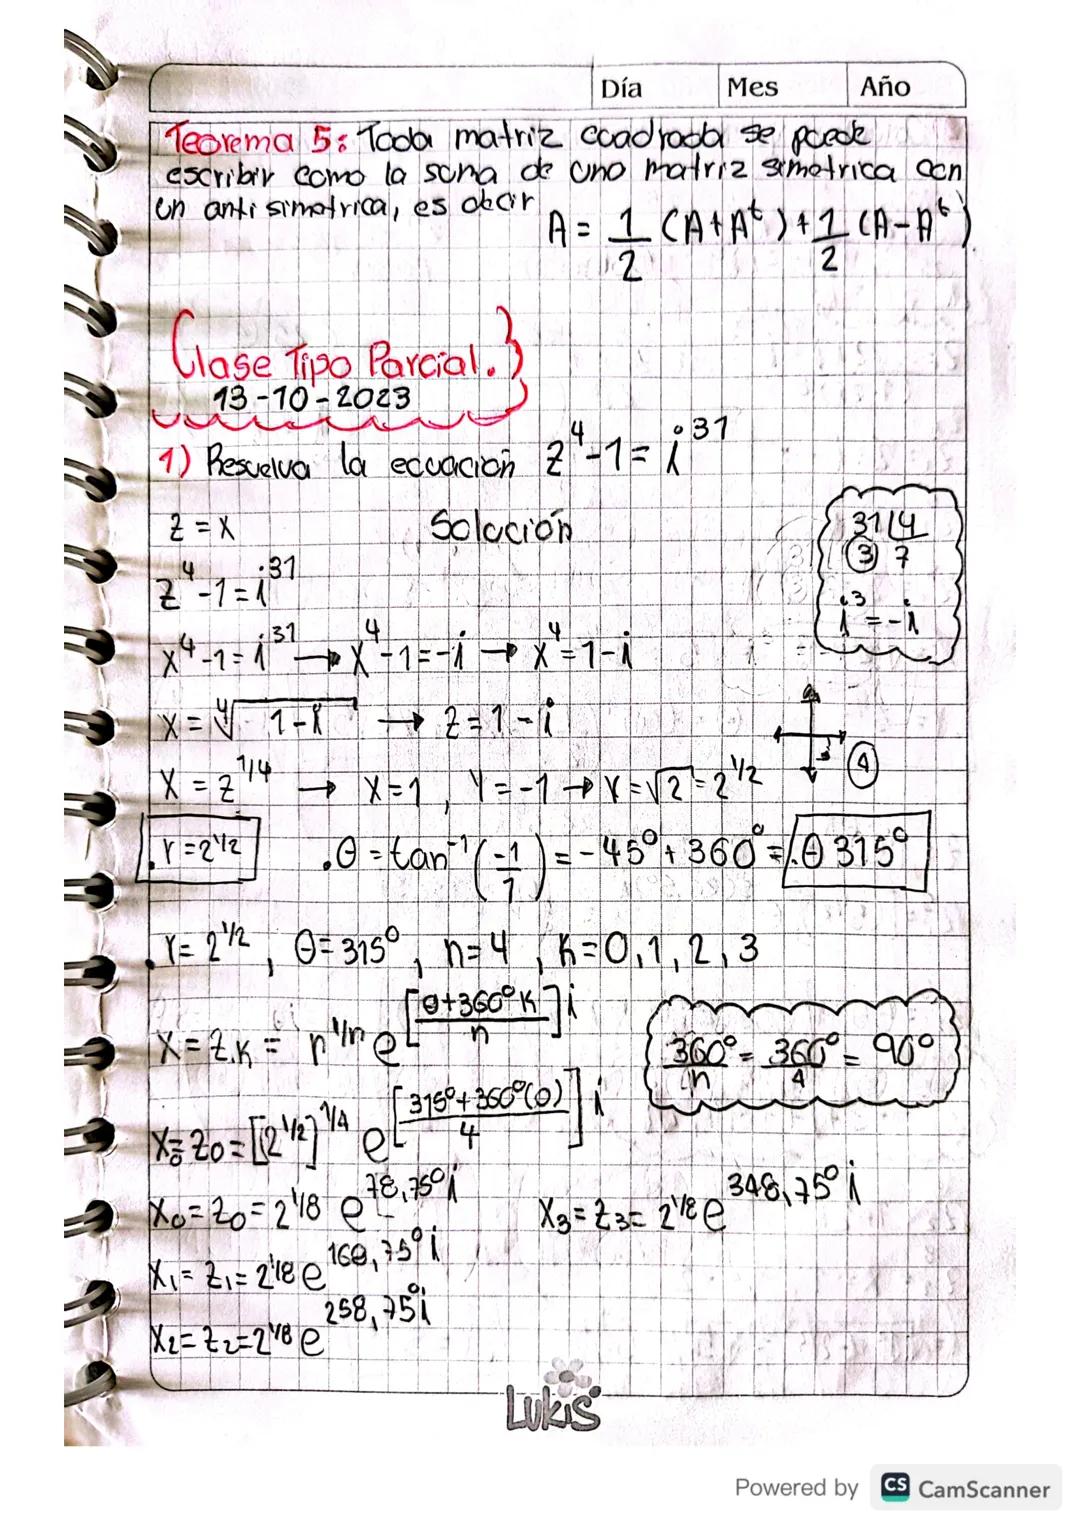 Día Mes Año
Teorema 5: Toda matriz cuadrada se puede
escribir como la suma de una matriz simetrica con
un anti simetrica, es decir A = 1/2 (A+A^t) + 1/2 (A-A^t)
Clase Tipo Parcial.
13-10-2023
1) Resuelva la ecuación z^4-1 = i^31
z = x Solución
31 | 4
3 7
z^4-1 = i^31
i^3 = -i
x^4-1 = i^31 → x^4-1 = -i → x^4 = 1-i
x = ∜1-i → z = 1-i
x = z^1/4 → x=1, y=-1 → r=√2 = 2^1/2 4
r=2^1/2 .θ = tan^-1 (-1/1) = -45° + 360° = .θ 315°
. r= 2^1/2, θ=315°, n=4, k=0,1,2,3
x = z.k = r^1/n e^[θ+360°k/n]i
360°/n = 360°/4 = 90°
x0= z0 = [2^1/2]^1/4 e^[315°+360°(0)/4]i
x0=z0=2^1/8 e^78,75°i x3=z3=2^1/8 e^348,75°i
x1=z1=2^1/8 e^168,75°i
x2=z2=2^1/8 e^258,75°i
Lukis
Powered by CS CamScanner